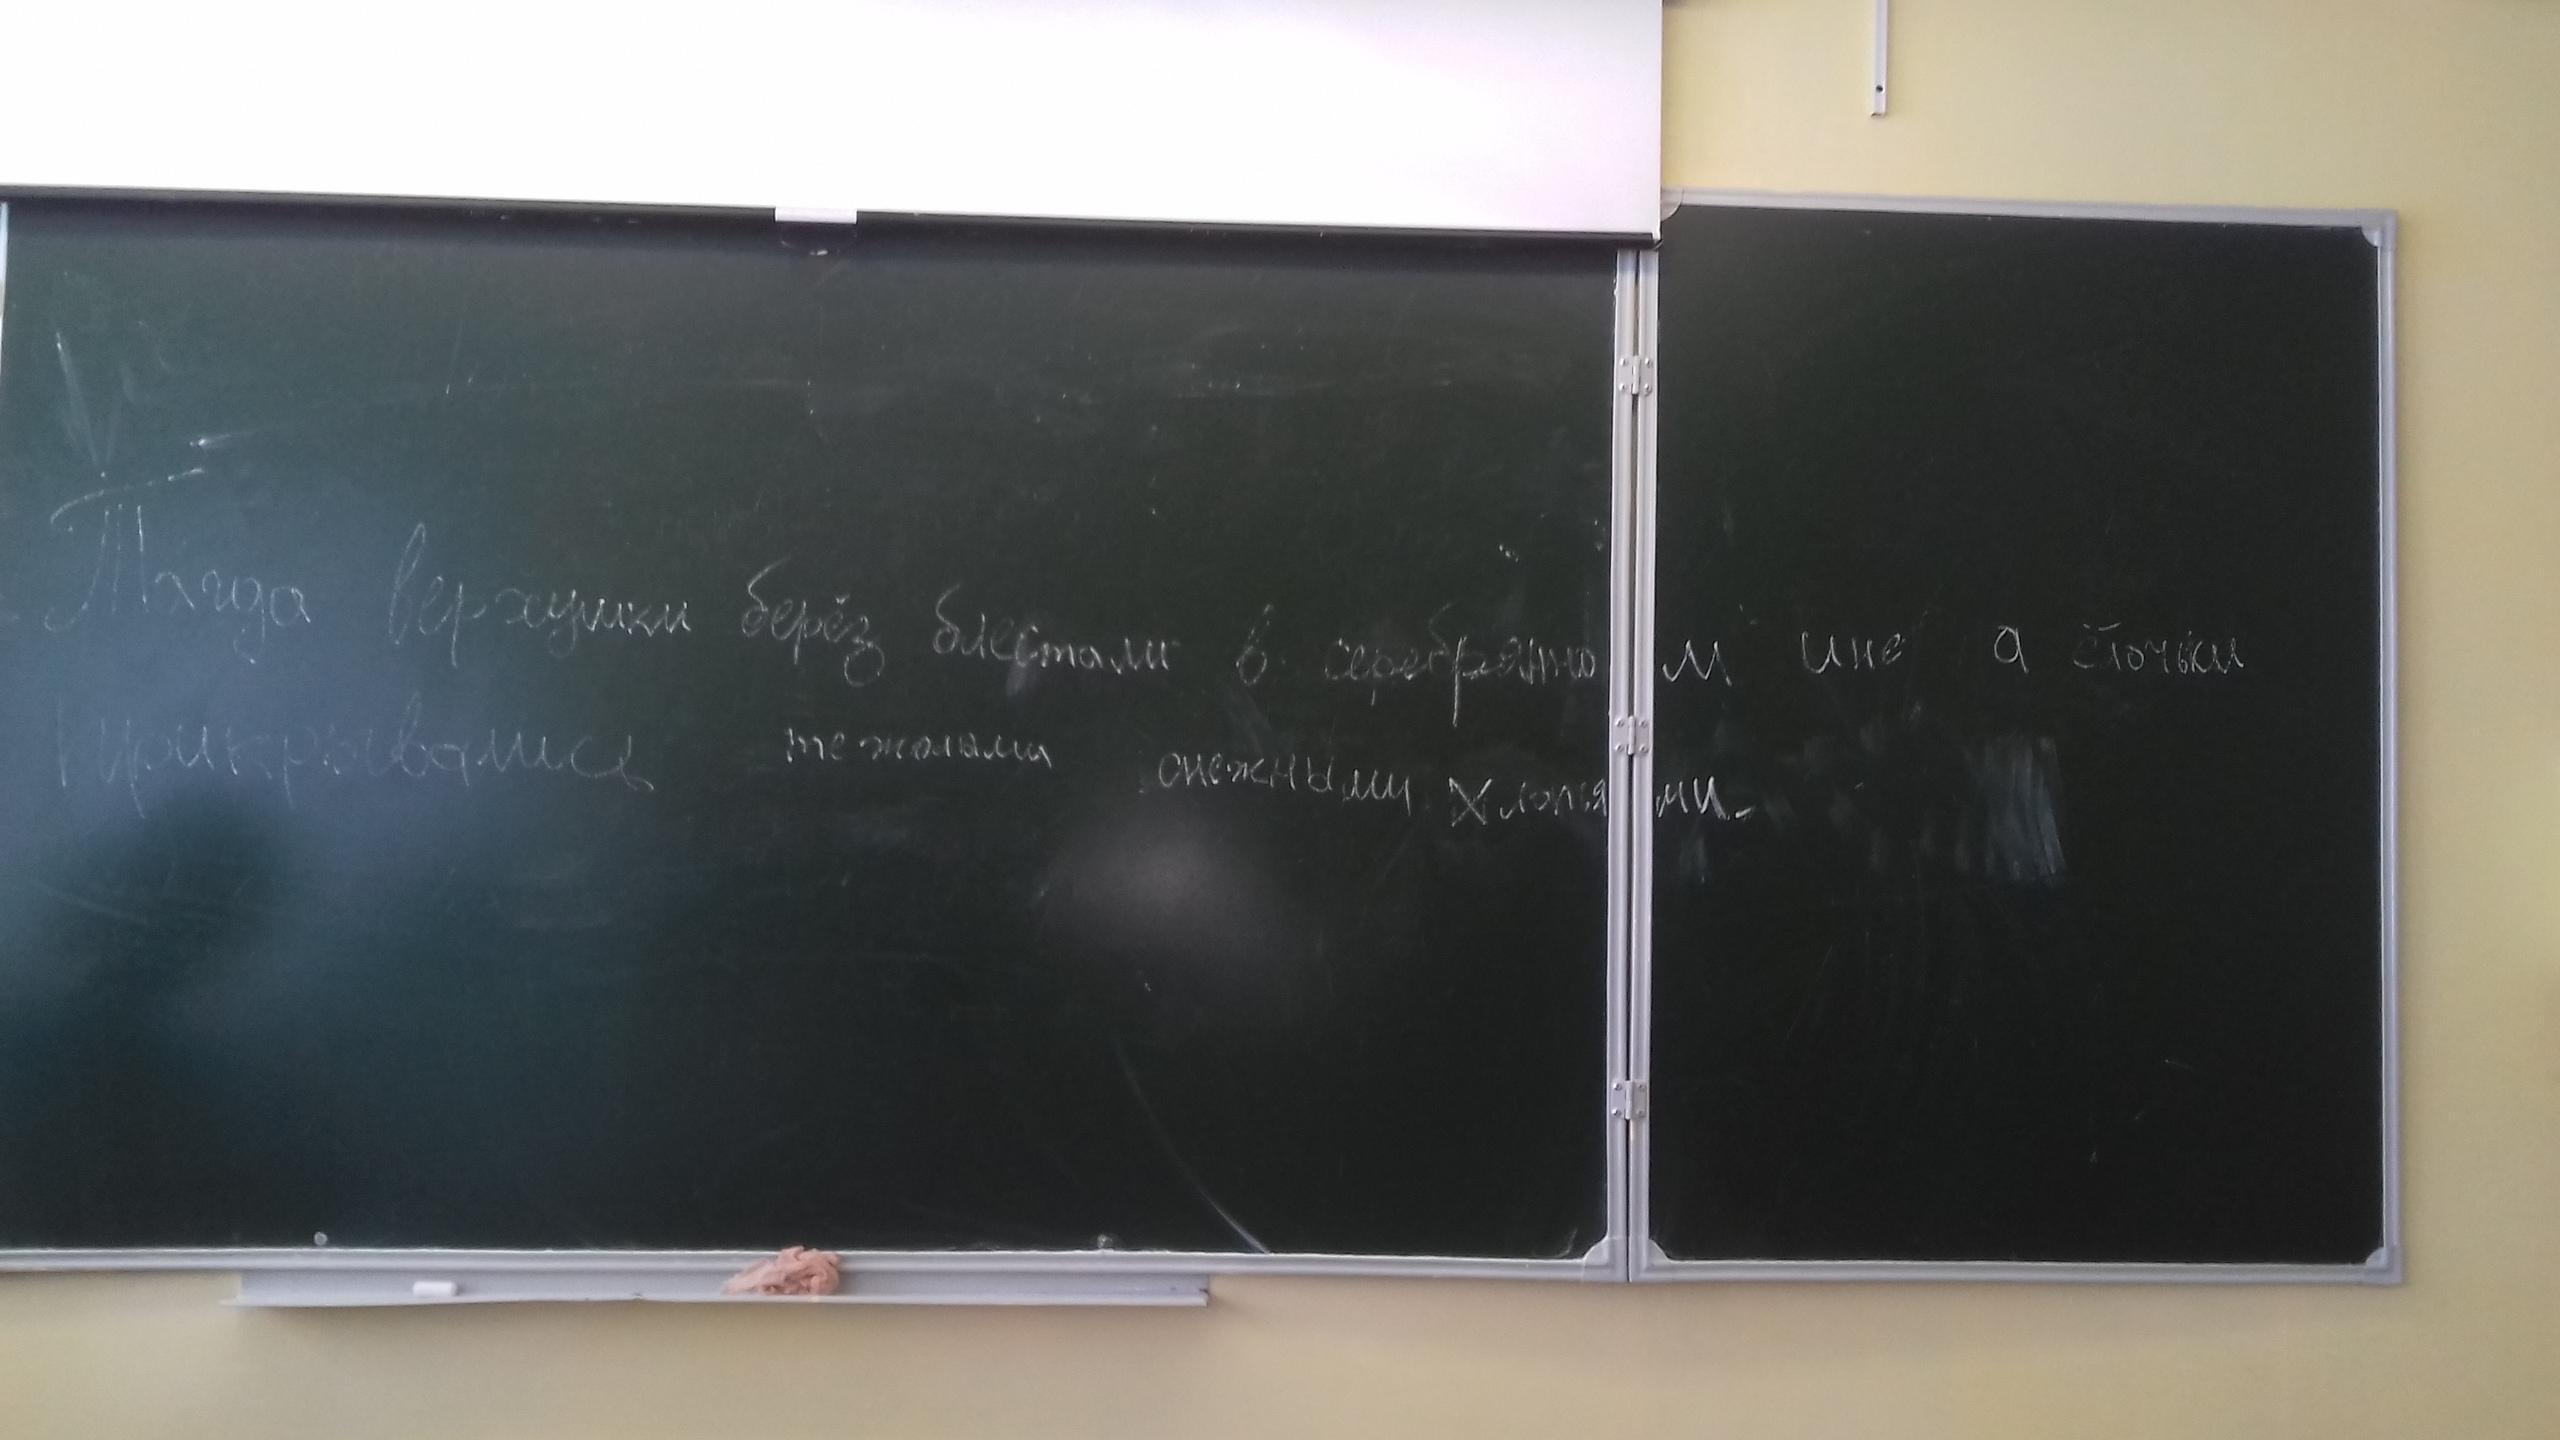 Тагда верхушки берёз блестали в серебрянном ине а ёлочьки
прикрывались тежолами снежными хлопьями.